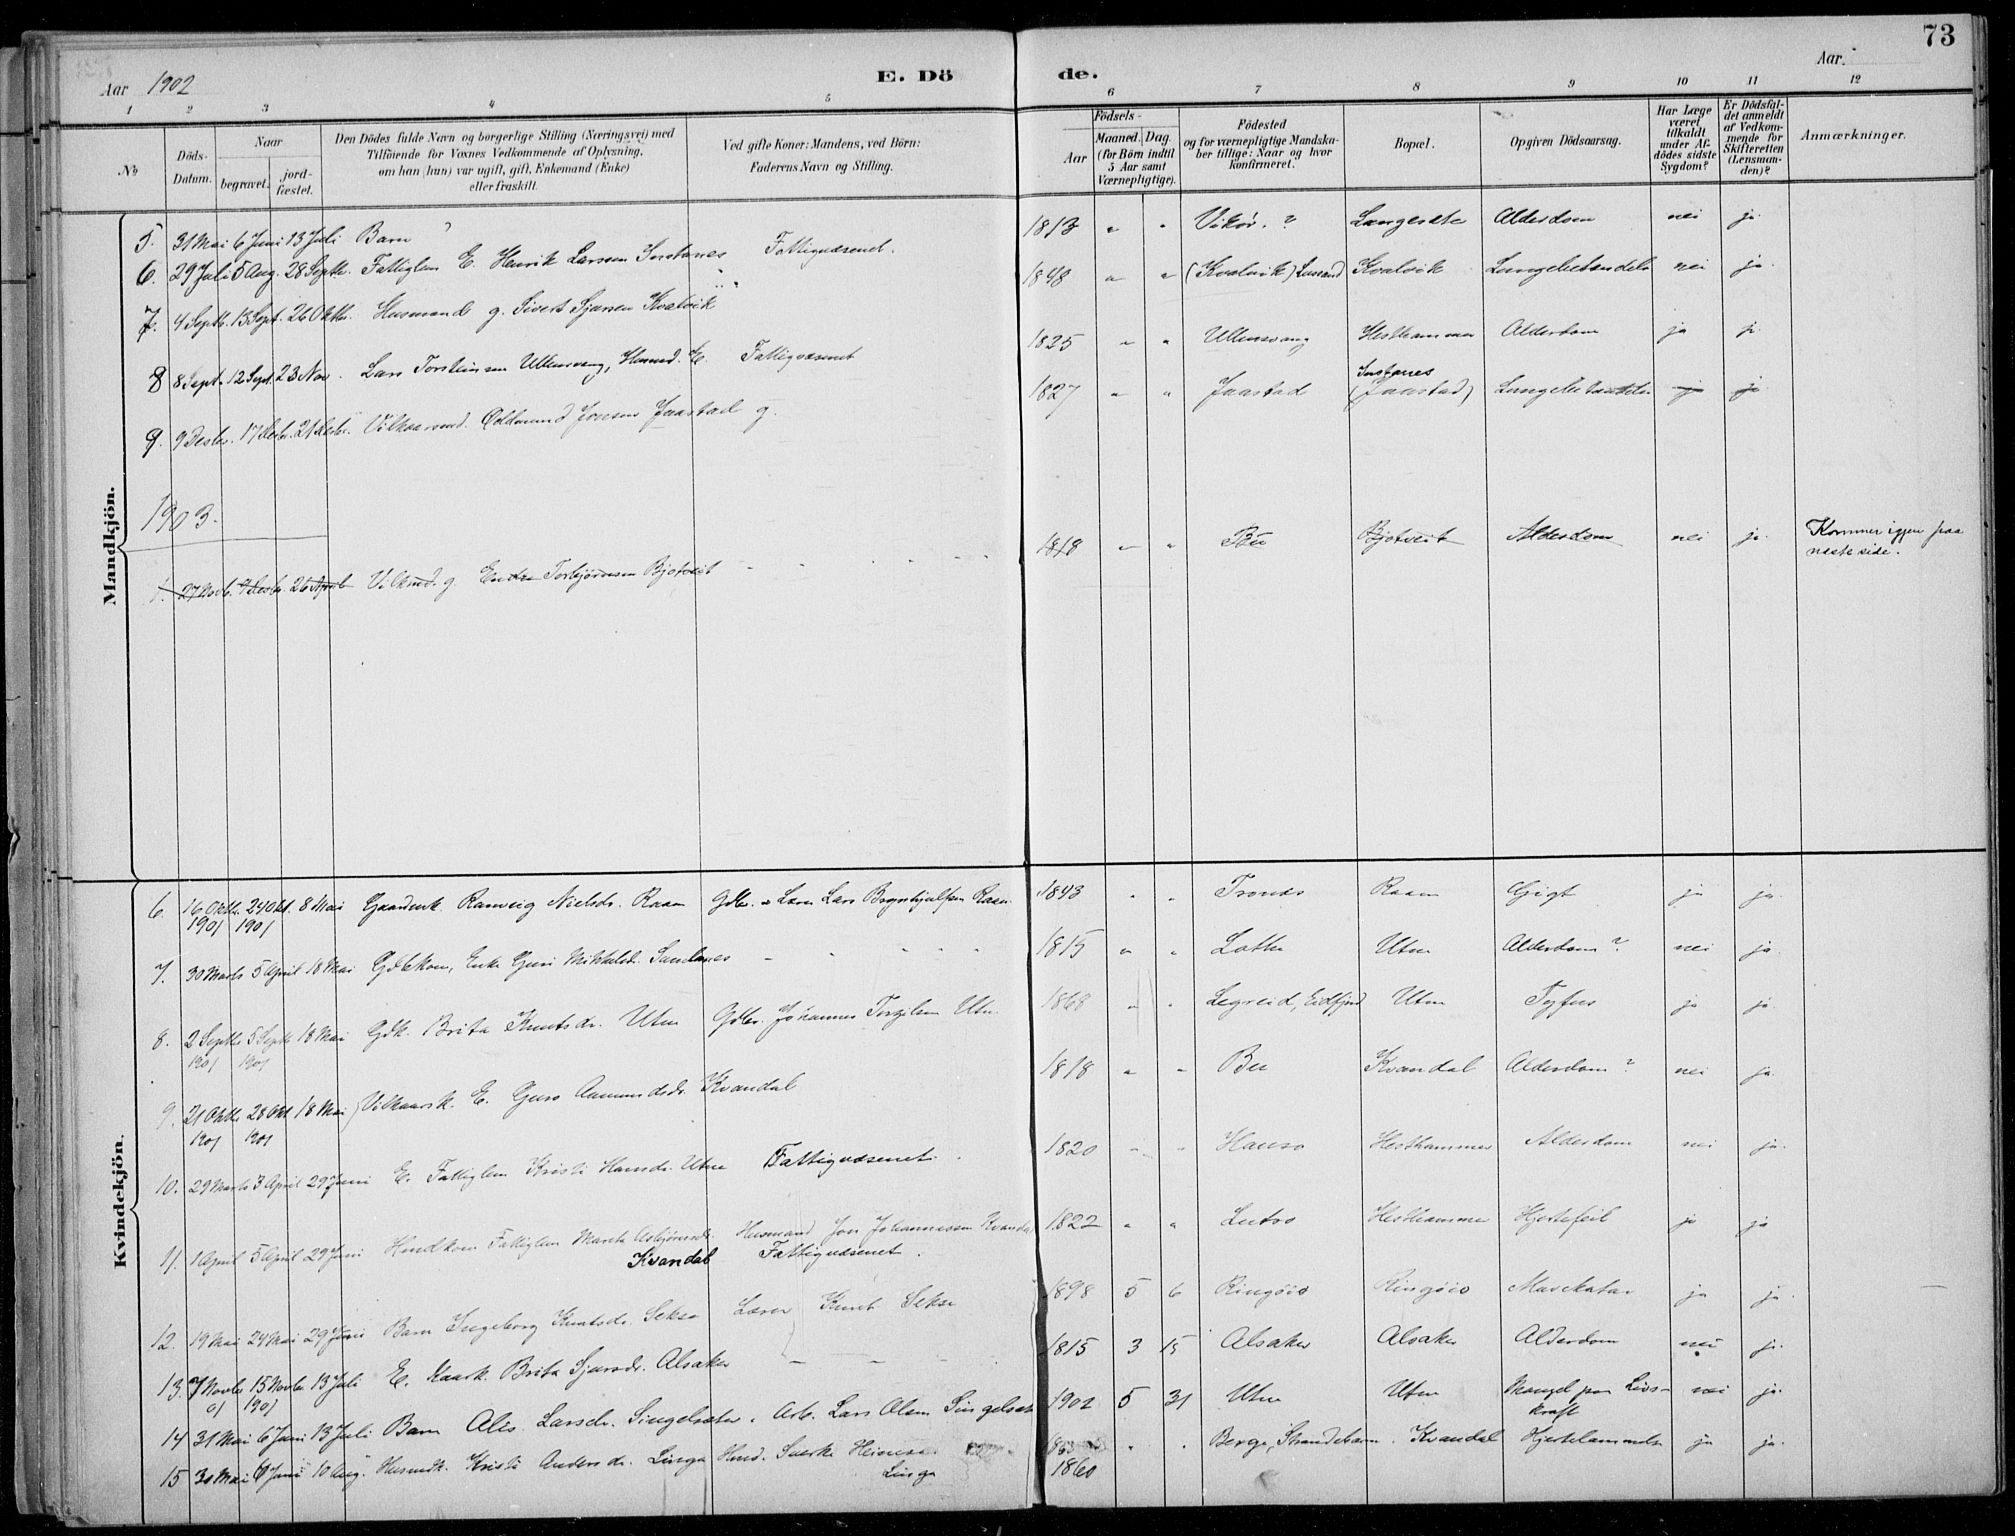 73
Aar 1902
E. Dö
de.
Aar
1 2 3 4 5 6 7 8 9 10 11 12
No
Döds-Datum.
Naar
begravet.
jord-fæstet.
Den Dödes fulde Navn og borgerlige Stilling (Næringsvei) med
Tilföiende for Voxnes Vedkommende af Oplysning,
om han (hun) var ugift, gift, Enkemand (Enke)
eller fraskilt.
Ved gifte Koner: Mandens, ved Börn:
Faderens Navn og Stilling.
Födsels-
Aar
Maaned. Dag.
(for Börn indtil
5 Aar samt
Værnepligtige).
Födested
og for værnepligtige Mandska-
ber tillige: Naar og hvor
konfirmeret.
Bopæl.
Opgiven Dödsaarsag.
Har Læge
været
tilkaldt
under Af-
dödes sidste
Sygdom?
Er Dödsfal-
det anmeldt
af Vedkom-
mende for
Skifteretten
(Lensman-
den)?
Anmærkninger.
Mandkjön.
5. 31 Mai 6 Juni 13 Juli Barn ?
6. 29 Juli 5 Aug. 28 Septb. Fattiglem E. Henrik Larssen Instanes Fattigvæsenet. 1813 " " Vikør. ? Langesæte Alderdom nei ja.
7. 4 Septb. 13 Sept. 26 Oktbr. Husmand g. Sivert Sjursen Kvalvik " 1848 " " (Kvalvik) Kvalvik Lungebetændelse nei ja.
8 8 Sept. 12 Sept. 23 Nov. Lars Torsteinsen Ullensvang, Husmd. E. Fattigvæsenet 1825 " " Ullensvang Hesthammer Alderdom ja ja
9. 9 Desbr. 17 Desbr. 21 Desbr. Vilkaarmd. Oddmund Jonsen Jaastad g. 1827 " " Jaastad Instanes (Jaastad) Lungebetændelse ja ja
1903.
1. 27 Novb. 4 Desbr. 26 April Vilkmd. g. Endre Torbjørnsen Bjotveit 1818 " " Bu Bjotveit Alderdom nei ja. Kommer igjen paa
næste side.
Kvindekjön.
6. 16 Oktbr. 24 Okt. 8 Mai Gaardmk. Ranveig Nielsdr. Raaen Gdbr. Lars Raaen 1843 " " Tronæs Raaen Gigt ja ja.
1901 1901
7. 30 Marts 5 April 18 Mai Gdbkone, Enke Guri Mikkelsdr. Samlanes 1815 " " Lothe Utne Alderdom ? nei ja.
8. 2 Septbr 5 Septb 18 Mai Gdk. Brita Knutsdr. Utne Gdbr. Johannes Torgilsen Utne. 1868 " " Legreid, Eidfjord Utne Tyfus ja ja.
1901 1901
9. 21 Oktbr 28 Okt 18 Mai Vilkaarsk. E. Guro Aamundsdr. Kvandal 1818 " " Bu Kvandal Alderdom ? nei ja.
1901 1901
10. 29 Marts 3 April 29 Juni E. Fattiglem Kristi Hansdr. Utne Fattigvæsenet. 1820 " " Hauso Hesthammer Alderdom nei ja.
11. 1 April 5 April 29 Juni Fattiglem Marita Asbjørnsdr. Husmand Jon Johannessen Kvandal 1822 " " Lutro Hesthammer Hjertefeil ja ja
Kvandal Fattigvæsenet.
12. 19 Mai 24 Mai 29 Juni Barn Ingeborg Knutsdr. Sekse Lærer Knut Sekse 1898 5 6 Ringøio Ringøio Mavekatar ja ja.
13. 7 Novbr 15 Novbr 13 Juli E. Kaark. Brita Sjursdr. Alsaker 1815 3 15 Alsaker Alsaker Alderdom nei ja.
01 1901
14 31 Mai 6 Juni 13 Juli Barn Alis Larsdr. Singelsæter. Arb. Lars Olsen Singelsæter 1902 5 31 Utne Utne Mangel paa Livs-kraft nei ja.
15 30 Mai 6 Juni 10 Aug. Husmdk. Kristi Andersdr. Linga Hmd. Sverke Linga 1860 " " Berge, Strandebarm. Kvandal Hjertelammelse ja ja.